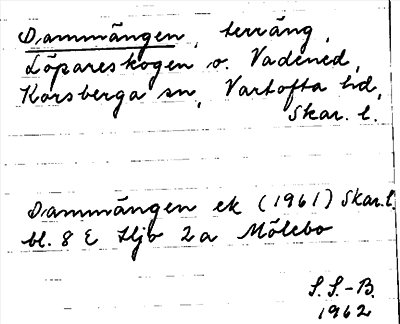 Dammängen, terräng,
Löpareskogen o. Vadened,
Korsberga sn, Vartofta hd,
Skar. l.
Dammängen ek (1961) Skar. l.
bl. 8 E Hjo 2a Mölebo
S. S.-B.
1962